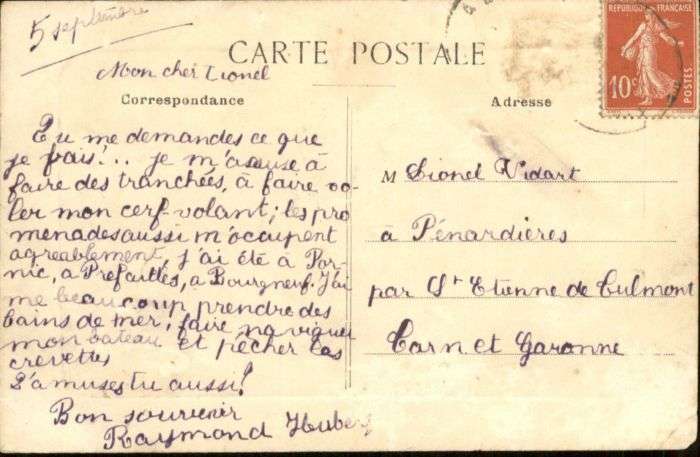 5 septembre
CARTE POSTALE
REPUBLIQUE FRANÇAISE
10c
POSTES
Mon cher Lionel
Correspondance
Tu me demandes ce que
je fais!... je m'amuse à
faire des tranchées, à faire vo-
ler mon cerf-volant; les pro
menades aussi m'occupent
agréablement, j'ai été à Por-
nic, à Préfailles, à Bourgneuf. J'ai
me beaucoup prendre des
bains de mer, faire naviguer
mon bateau et pêcher les
crevettes
T'amuses tu aussi!
Bon souvenir
Raymond Hubert
Adresse
M Lionel Vidart
à Pénardières
par St Etienne de Tulmont
Tarn et Garonne